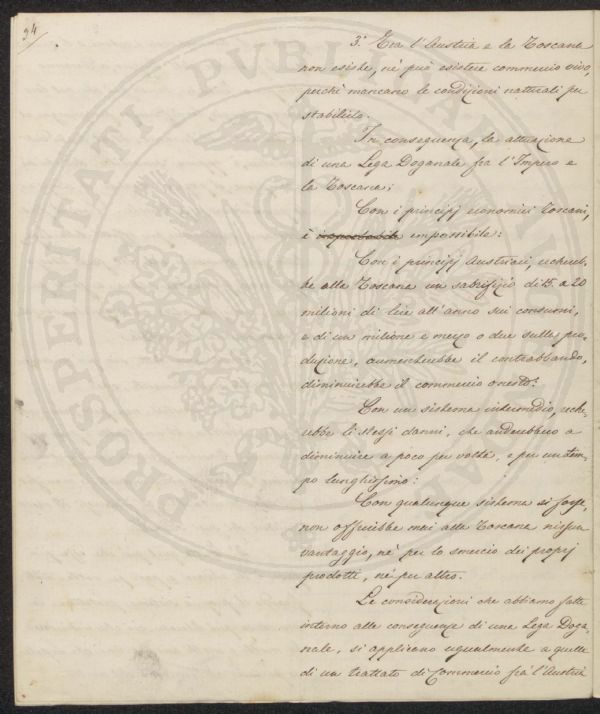 34
3.° Tra l'Austria e la Toscana
non esiste, nè può esistere commercio vivo,
perchè mancano le condizioni naturali per
stabilirlo.
In conseguenza, la attuazione
di una Lega Doganale fra l'Impero e
la Toscana;
Con i principj economici Toscani,
è impossibile:
Con i principj Austriaci, rechereb-
be alla Toscana un sabrifizio di 15. a 20
milioni di lire all'anno sui consumi,
e di un milione e mezzo o due sulla pro-
duzione, aumenterebbe il contrabbando,
diminuirebbe il commercio onesto:
Con un sistema intermedio, reche-
rebbe li stessi danni, che anderebbero a
diminuire a poco per volta, e per un tem-
po lunghissimo:
Con qualunque sistema si fosse,
non offrirebbe mai alla Toscana nissun
vantaggio, nè per lo smercio dei proprj
prodotti, nè per altro.
Le considerazioni che abbiamo fatte
intorno alle conseguenze di una Lega Doga-
nale, si applicano ugualmente a quelle
di un trattato di Commercio fra l'Austria
PROSPERITATI PUBLICAE